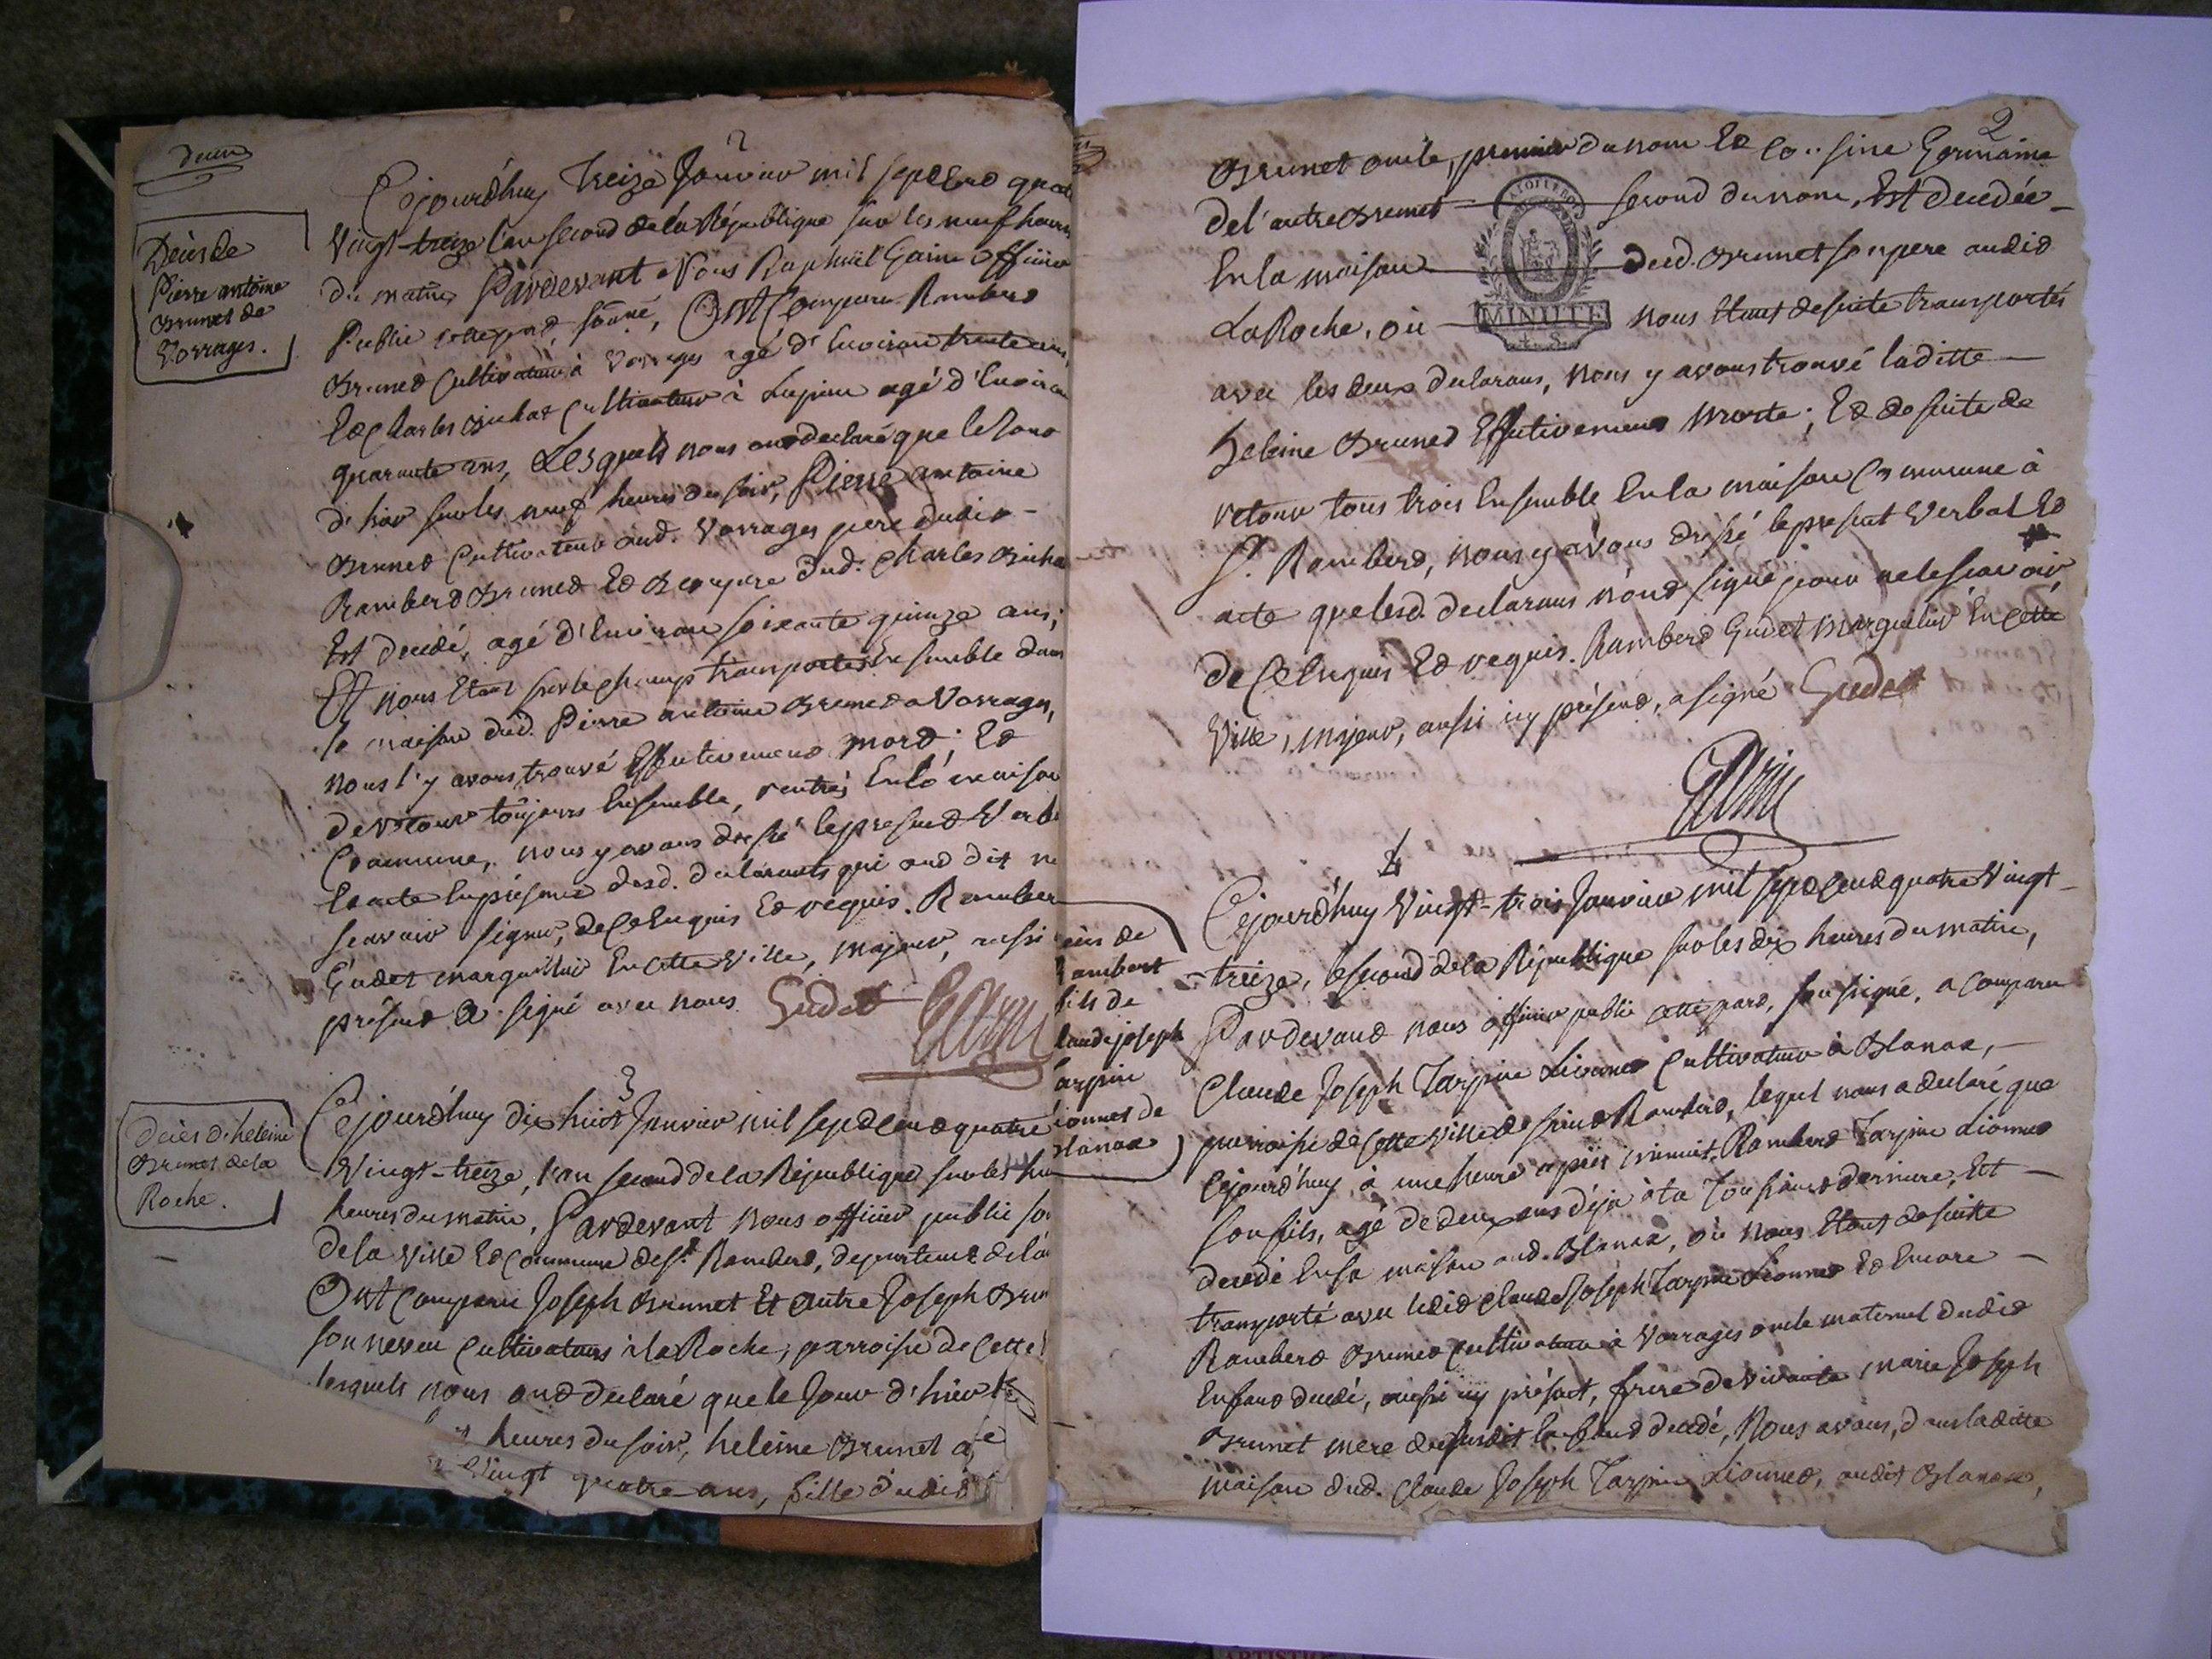 Deces
Décès de
Pierre antoine
Brunet de
Vorrages.
2
Cejourd'huy treize Janvier mil sept Cent quatre
Vingt-treize l'an second de la République sur les neuf heures
du matin, Pardevant Nous Raphaël Garin officier
Public soussigné, Ont Comparu Rambert
Brunet Cultivateur à Vorrages agé d'Environ trente ans,
Et Charles Cultivateur à Lupieu agé d'Environ
quarante ans, Lesquels nous ont declaré que le Jour
d'hier sur les neuf heures du soir, Pierre antoine
Brunet Cultivateur aud. Vorrages pere dudit
Rambert Brunet Et Beaupere dud. Charles
Est decedé, agé d'Environ soixante quinze ans;
Et nous Etant sur le champ transportés Ensemble dans
la maison dud. Pierre antoine Brunet a Vorrages,
nous l'y avons trouvé Effectivement mort; Et
de retour toûjours Ensemble, rentrés En la maison
Commune, nous y avons dressé le present Verbal
Et acte En présence desd. declarants qui ont dit ne
scavoir signer, de ce Enquis Et requis. Rambert
Gudet marguillier En cette Ville, majeur, aussi
présent a signé avec nous. Gudet Garin
Décès d'heleine
Brunet de la
Roche.
3
Cejourd'huy dix huit Janvier mil sept Cent quatre
Vingt-treize, l'an second de la République sur les huit
heures du matin, Pardevant Nous officier public
de la Ville Et Commune de St. Rambert, departement de l'ain
Ont Comparu Joseph Brunet Et autre Joseph Brunet
son neveu Cultivateurs à la Roche, parroisse de Cette
lesquels nous ont declaré que le Jour d'hier
heures du soir, heleine Brunet agée
Vingt quatre ans, fille dudit
2
Brunet oncle, premier du nom Et Cousine Germaine
de l'autre Brunet second du nom, Est decedée
En la maison dud. Brunet son pere audit
LaRoche, où MINUTE nous Etant de suite transportés
avec les deux declarans, nous y avons trouvé laditte
heleine Brunet Effectivement morte; Et de suite de
retour tous trois Ensemble En la maison Commune à
St. Rambert, nous y avons dressé le present Verbal Et
acte que lesd. declarans n'ont signé pour ne le scavoir,
de Ce Enquis Et requis. Rambert Gudet Marguillier En Cette
Ville, majeur, aussi icy présent, a signé Gudet
Garin
ces de
Rambert
fils de
laude joseph
arpin
ionnet de
Blanaz
4
Cejourd'huy Vingt-trois Janvier mil sept Cent quatre Vingt
treize, le second de la République sur les dix heures du matin,
Pardevant nous officier public, soussigné, a Comparu
Claude Joseph Tarpin Lionnet Cultivateur à Blanaz,
parroisse de Cette Ville de saint Rambert, lequel nous a declaré que
Cejourd'huy, à une heure après minuit, Rambert Tarpin Lionnet
son fils, agé de deux ans déja à la Toussaint derniere, Est
decedé En sa maison aud. Blanaz, où nous Etant de suite
transporté avec ledit Claude Joseph Tarpin Lionnet Et Encore
Rambert Brunet Cultivateur à Vorrages oncle maternel dudit
Enfant decedé, aussi icy présent, frere de vivante marie Joseph
Brunet mere dudit Enfant decedé, Nous avons, dans laditte
maison dud. Claude Joseph Tarpin Lionnet, audit Blanaz,